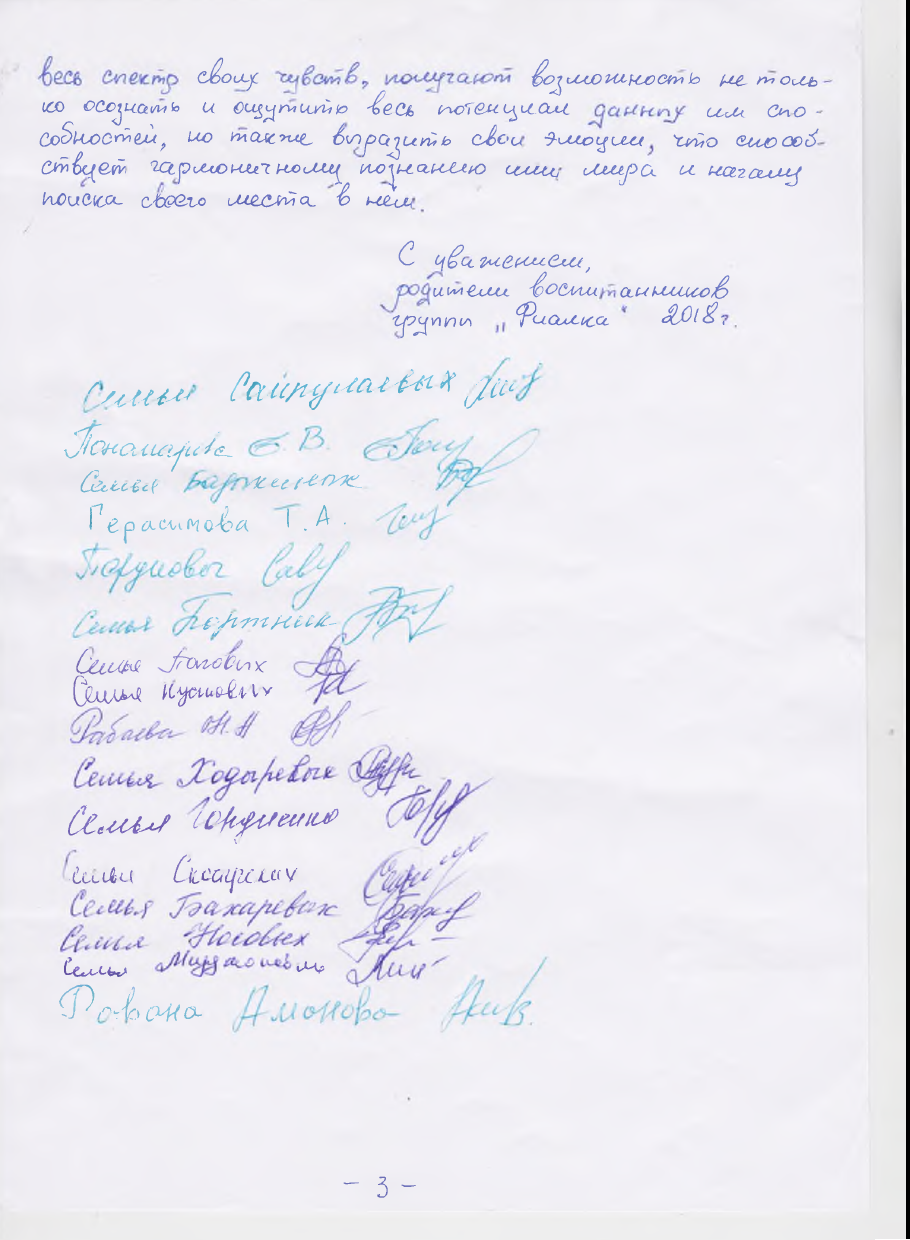 весь спектр своих чувств, получают возможность не толь-
ко осознать и ощутить весь потенциал данных им спо-
собностей, но также выразить свои эмоции, что способ-
ствует гармоничному познанию ими мира и началу
поиска своего места в нём.
С уважением,
родители воспитанников
группы „Фиалка“ 2018г.
Семьи Сайпулаевых
Пономарева Е. В.
Семья
Герасимова Т. А.
Семья Портник
Семья
Семья
Рабаева Н.Н
Семья Ходыревых
Семья Гордиенко
Семья
Семья Бахаревых
Семья Носовых
Семья
Равана Амонова
- 3 -